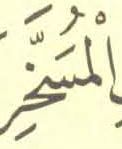 الْمُسَخَّرِ